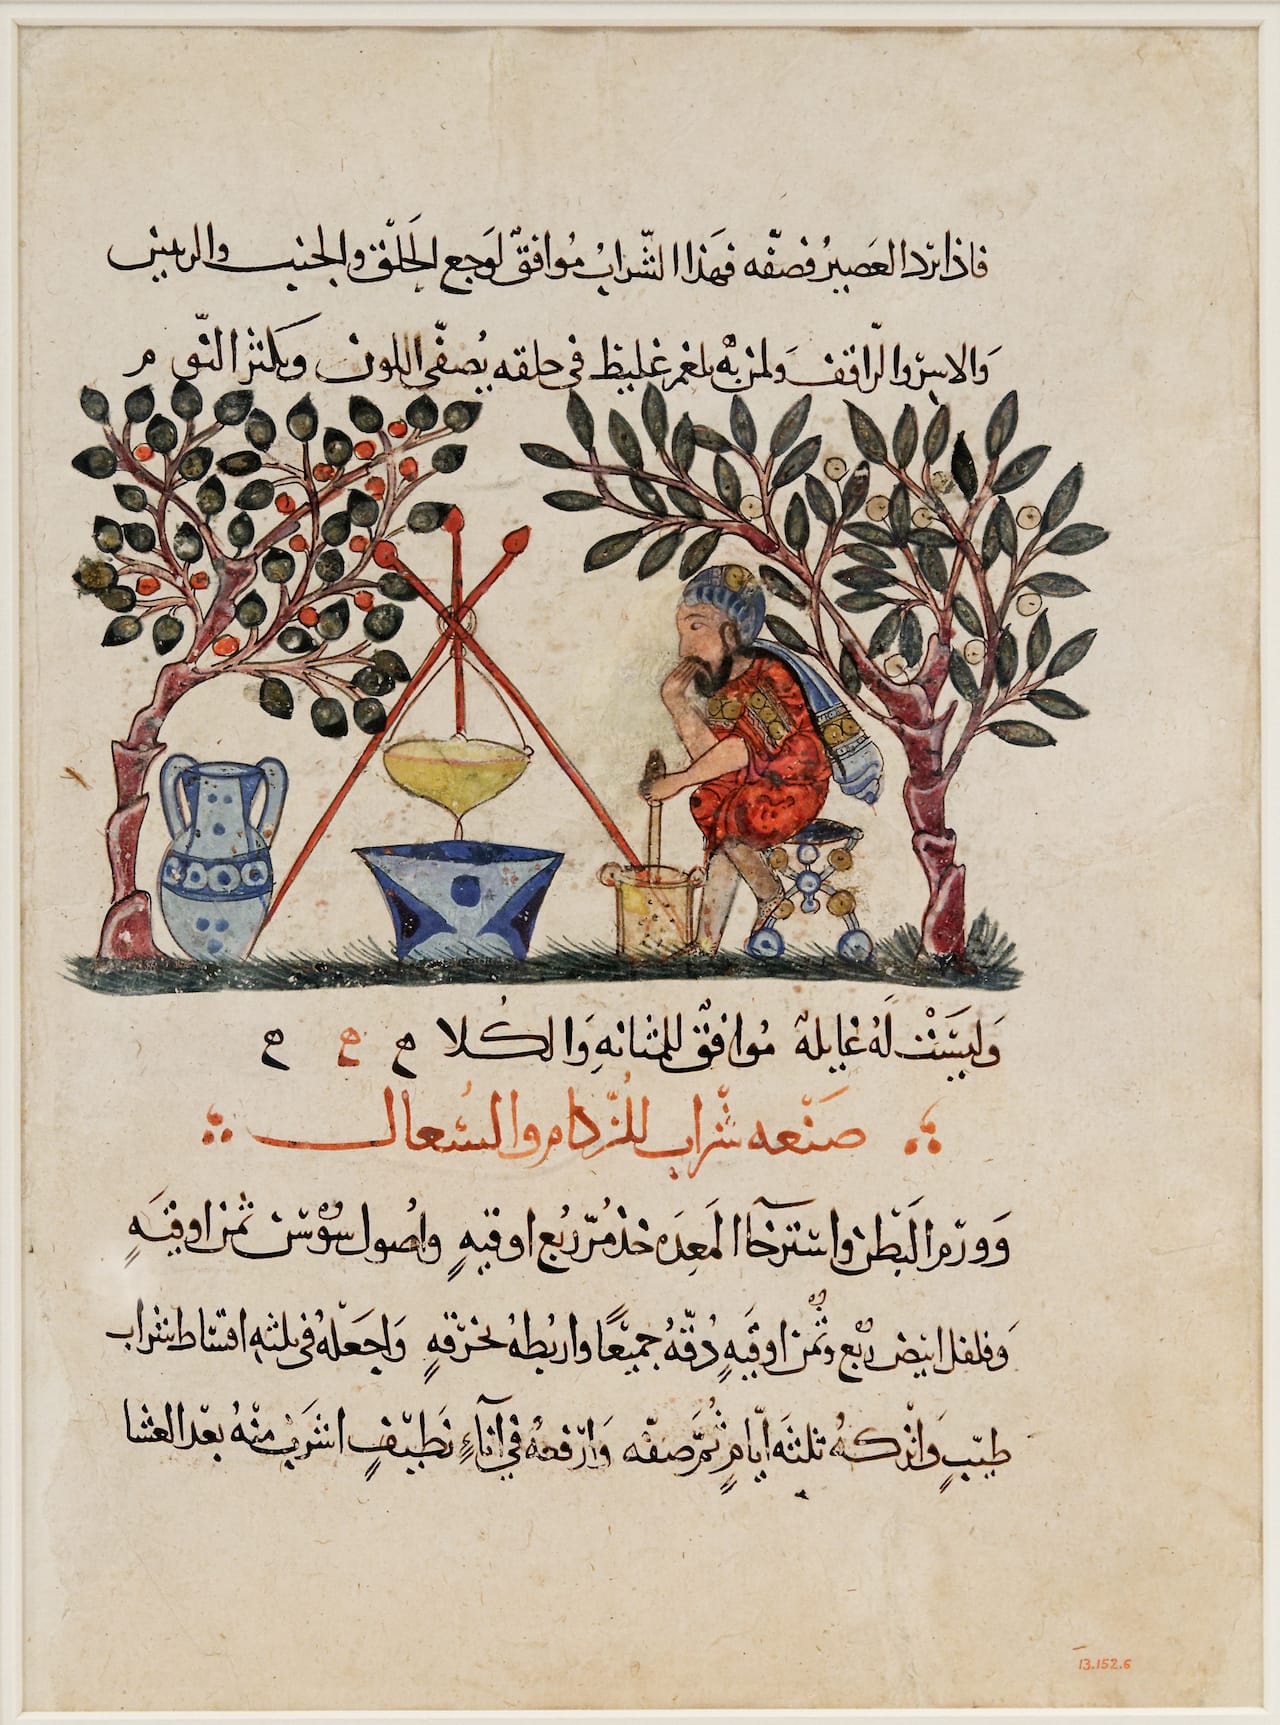 فاذا برد العَصيرُ فصفّه فهَذا الشّرابُ مُوافقٌ لوَجع الحَلْق والجنب والريين
وَالاسرِ والرّاقف وَلمن به بلغم غليظ في حلقه يُصفّي اللون ويكثر النّوم
وَليسَتْ لَهُ غايلة مُوافقٌ للمثانهِ وَالكُلا ح ح ح
صَنْعه شَراب للزّكام والسُعال
وَوَرَم البَطن واسْترخا المَعِدَه خذ مُرّ ربُع اوقيهٍ واصُول سُوْسَن ثمن اوقيَهٍ
وَفلفل ابيض ربْع وثُمن اوقيَهٍ دُقّهُ جميعًا واربُطهُ بخرْقهٍ وَاجعَلْهُ في ثلثهِ اقساط شراب
طيّبٍ وَاتْركهُ ثلثهَ ايّامٍ ثُمَّ صفّه وَارْفعهُ في انآءٍ نَظيفٍ اشرَب منْهُ بعْد العشا
13.152.6